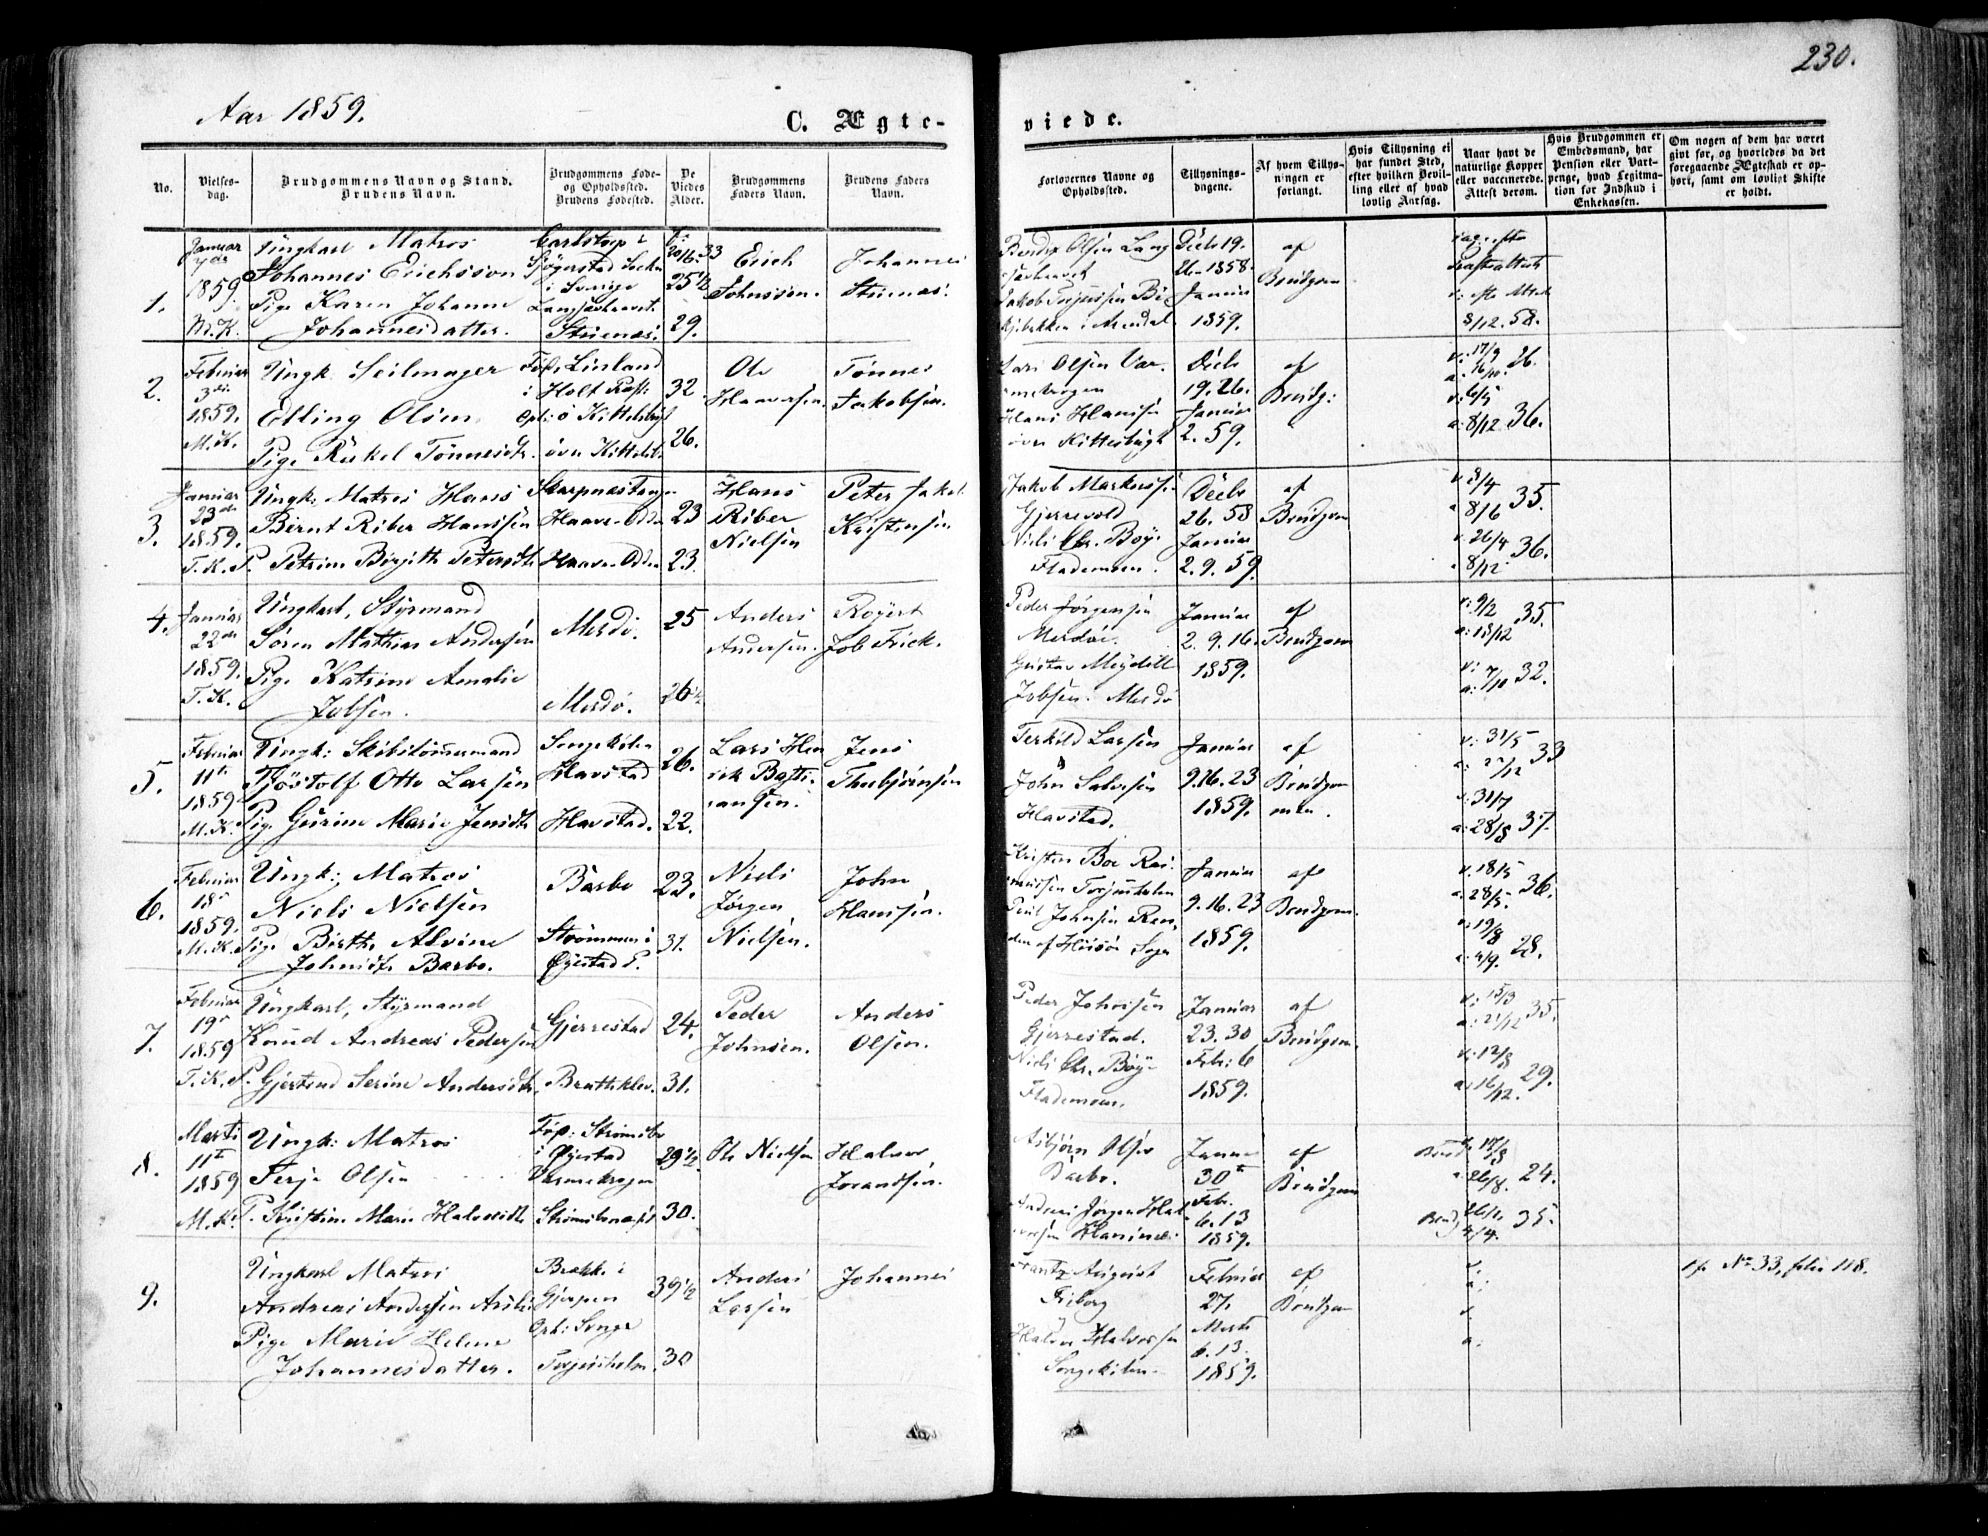 230.
Aar 1859.
C. Ægte-
viede.
No.
Vielses-
dag.
Brudgommens Navn og Stand.
Brudens Navn.
Brudgommens Føde-
og Opholdssted.
Brudens Fødested.
De
Viedes
Alder.
Brudgommens
Faders Navn.
Brudens Faders
Navn.
Forlovernes Navne og
Opholdssted.
Tillysnings-
dagene.
Af hvem Tillys-
ningen er
forlangt.
Hvis Tillysning ei
har fundet Sted,
efter hvilken Bevil-
ling eller af hvad
lovlig Aarsag.
Naar havt de
naturlige Kopper
eller vaccinerede.
Attest derom.
Hvis Brudgommen er
Embedsmand, har
Pension eller Vart-
penge, hvad Legitima-
tion for Indskud i
Enkekassen.
Om nogen af dem har været
gift før, og hvorledes da det
foregaaende Ægteskab er op-
hørt, samt om lovligt Skifte
er holdt.
1.
Januar
1859
M.K.
Ungkarl Matros
Johannes Erichsson
Pige Karen Johanne
Johannesdatter.
Carlstorp i
i Sverige
Stuenæs.
25 1/2
29.
Erich
Johnsson.
Johannes
Stuenæs.
Bendix Olsen Lang
Decb 19.
26. 1858.
Januar
1859.
af
Brudgom
8/12. 58.
2.
Februar
3die
1859.
M.K.
Ungk. Seilmager
Elling Olsen
Pige Rakel Tønnesdtr.
i Holt
32.
26.
Ole
Haavorsen.
Tønnes
Jakobsen.
Lars Olsen Var-
mekrogen
Hans Hansen
Decb
19. 26.
Januar
2. 59.
af
Brudg:
v: 17/9
a: 16/10 26.
v: 6/5
a: 8/12 36.
3.
Januar
23de
1859.
T.K.
Ungk: Matros Hans
Bernt Riber Hansen
P. Petrine Birgitte Petersdtr
Skarpnæstangen
Haave Odden
Haave Odden
23
23.
Hans
Riber
Nielsen
Peter Jakob
Kristensen
Jakob Markussen
Gjerrevold
Niels Chr. Boye
Flademoen.
Decbr
26. 58
Januar
2. 9. 59.
af
Brudgom
v. 3/4
a 8/6 35.
v. 26/4
8/12 36.
4.
Januar
22de
1859.
T.K.
Ungkarl, Styrmand
Søren Mathias Andersen
Pige Katrine Amalie
Jobsen.
Merdø.
Merdø.
25
26 1/2
Anders
Andersen.
Røyert
Job Frick.
Peder Jørgensen
Merdøe.
Gustav Meydell
Jobsen. Merdø
Januar
2. 9. 16.
1859.
af
Brudgom
v: 9/2
a: 18/12 35.
v:
a: 7/10 32.
5.
Februar
11te
1859
M.K.
Ungk: Skibstømmermand
Tjøstolf Otto Larsen
Pige Gurine Marie Jensdtr
Songekilen
Havstad
Havstad.
26.
22.
Lars Hen
rik Basti-
ansen.
Jens
Thorbjørnsen
Terkild Larsen
John Salvesen
Havstad.
Januar
9. 16. 23
1859.
af
Brudgom
men.
v: 31/5
a: 22/12 33
v: 31/7
a: 28/8 37.
6.
Februar
18e
1859.
M.K.
Ungk: Matros
Niels Nielsen
Pige Birthe Alvine
Johnsdtr Barbo.
Barbo
Strømmen i
Øyestad P.
23.
31.
Niels
Jørgen
Nielsen.
John
Hansen.
Kristen Boe Ras-
mussen Torjusholm
af Hisøe Sogn
Januar
9. 16. 23
1859.
af
Brudgom.
v. 18/5
a. 28/5. 36.
v: 19/8
a: 4/9. 28.
7.
Februar
19e
1859
T.K.
Ungkarl, Styrmand
Knud Andreas Pedersen
P. Gjertrud Serine Andersdtr.
Gjerrestad
Bratteklev.
24.
31.
Peder
Johnsen.
Anders
Olsen.
Peder Johnsen
Gjerrestad.
Niels Chr. Boye
Flademoen.
Januar
23. 30
Febr: 6
1859.
af
Brudgom.
v: 15/3
a: 21/12 35.
v: 12/8
a: 16/12. 29.
8.
Marts
11te
1859
M.K.
Ungk: Matros
Terje Olsen
P. Kirstine Marie Halvorsdtr
Fôp: Strømsbo
i Øyestad
Varmekrogen
29 1/2
30.
Ole Nielsen
Halvor
Jorandsen.
Asbjørn Olsen
Barbo.
Andreas Jørgen Hal
vorsen
Januar
30te
Febr.
6. 13
1859.
af
Brudgom
v. 17/8
a. 26/8. 24.
35.
4/4.
9.
Ungkarl Matros
Andreas Andersen
Pige Marie Helene
Johannesdatter.
Brekke i
Gjerpen
Oph: Songe
Torjusholm.
39 1/2
30
Anders
Larsen
Johannes
Frantz August
Friborg
Halvor Halvorsen
Songekilen.
Februar
27.
Marts
6. 13.
1859.
af
Brudgom
v:
a:
v.
a:
cfr No 33, folio 118.